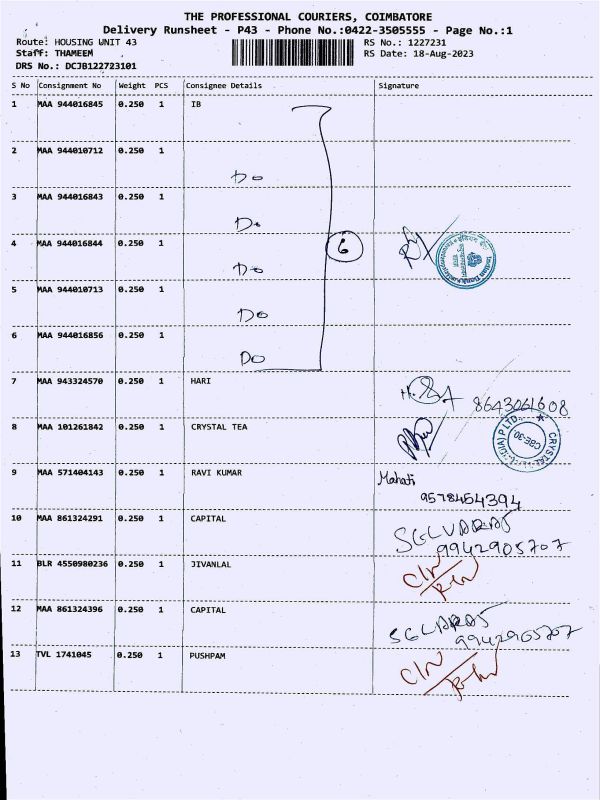 THE PROFESSIONAL COURIERS, COIMBATORE
Delivery Runsheet - P43 - Phone No.:0422-3505555 - Page No.:1
Route: HOUSING UNIT 43 RS No.: 1227231
Staff: THAMEEM RS Date: 18-Aug-2023
DRS No.: DCJB122723101
S No Consignment No Weight PCS Consignee Details Signature
1 MAA 944016845 0.250 1 IB
2 MAA 944010712 0.250 1
Do
3 MAA 944016843 0.250 1
Do
4 MAA 944016844 0.250 1 6
Do
5 MAA 944010713 0.250 1
Do
6 MAA 944016856 0.250 1
Do
7 MAA 943324570 0.250 1 HARI
8643061608
8 MAA 101261842 0.250 1 CRYSTAL TEA
CRYSTAL (INDIA) P LTD. CBE-30.
9 MAA 571404143 0.250 1 RAVI KUMAR Mahati
9578454394
10 MAA 861324291 0.250 1 CAPITAL
9942905707
11 BLR 4550980236 0.250 1 JIVANLAL
12 MAA 861324396 0.250 1 CAPITAL
9942905707
13 TVL 1741045 0.250 1 PUSHPAM